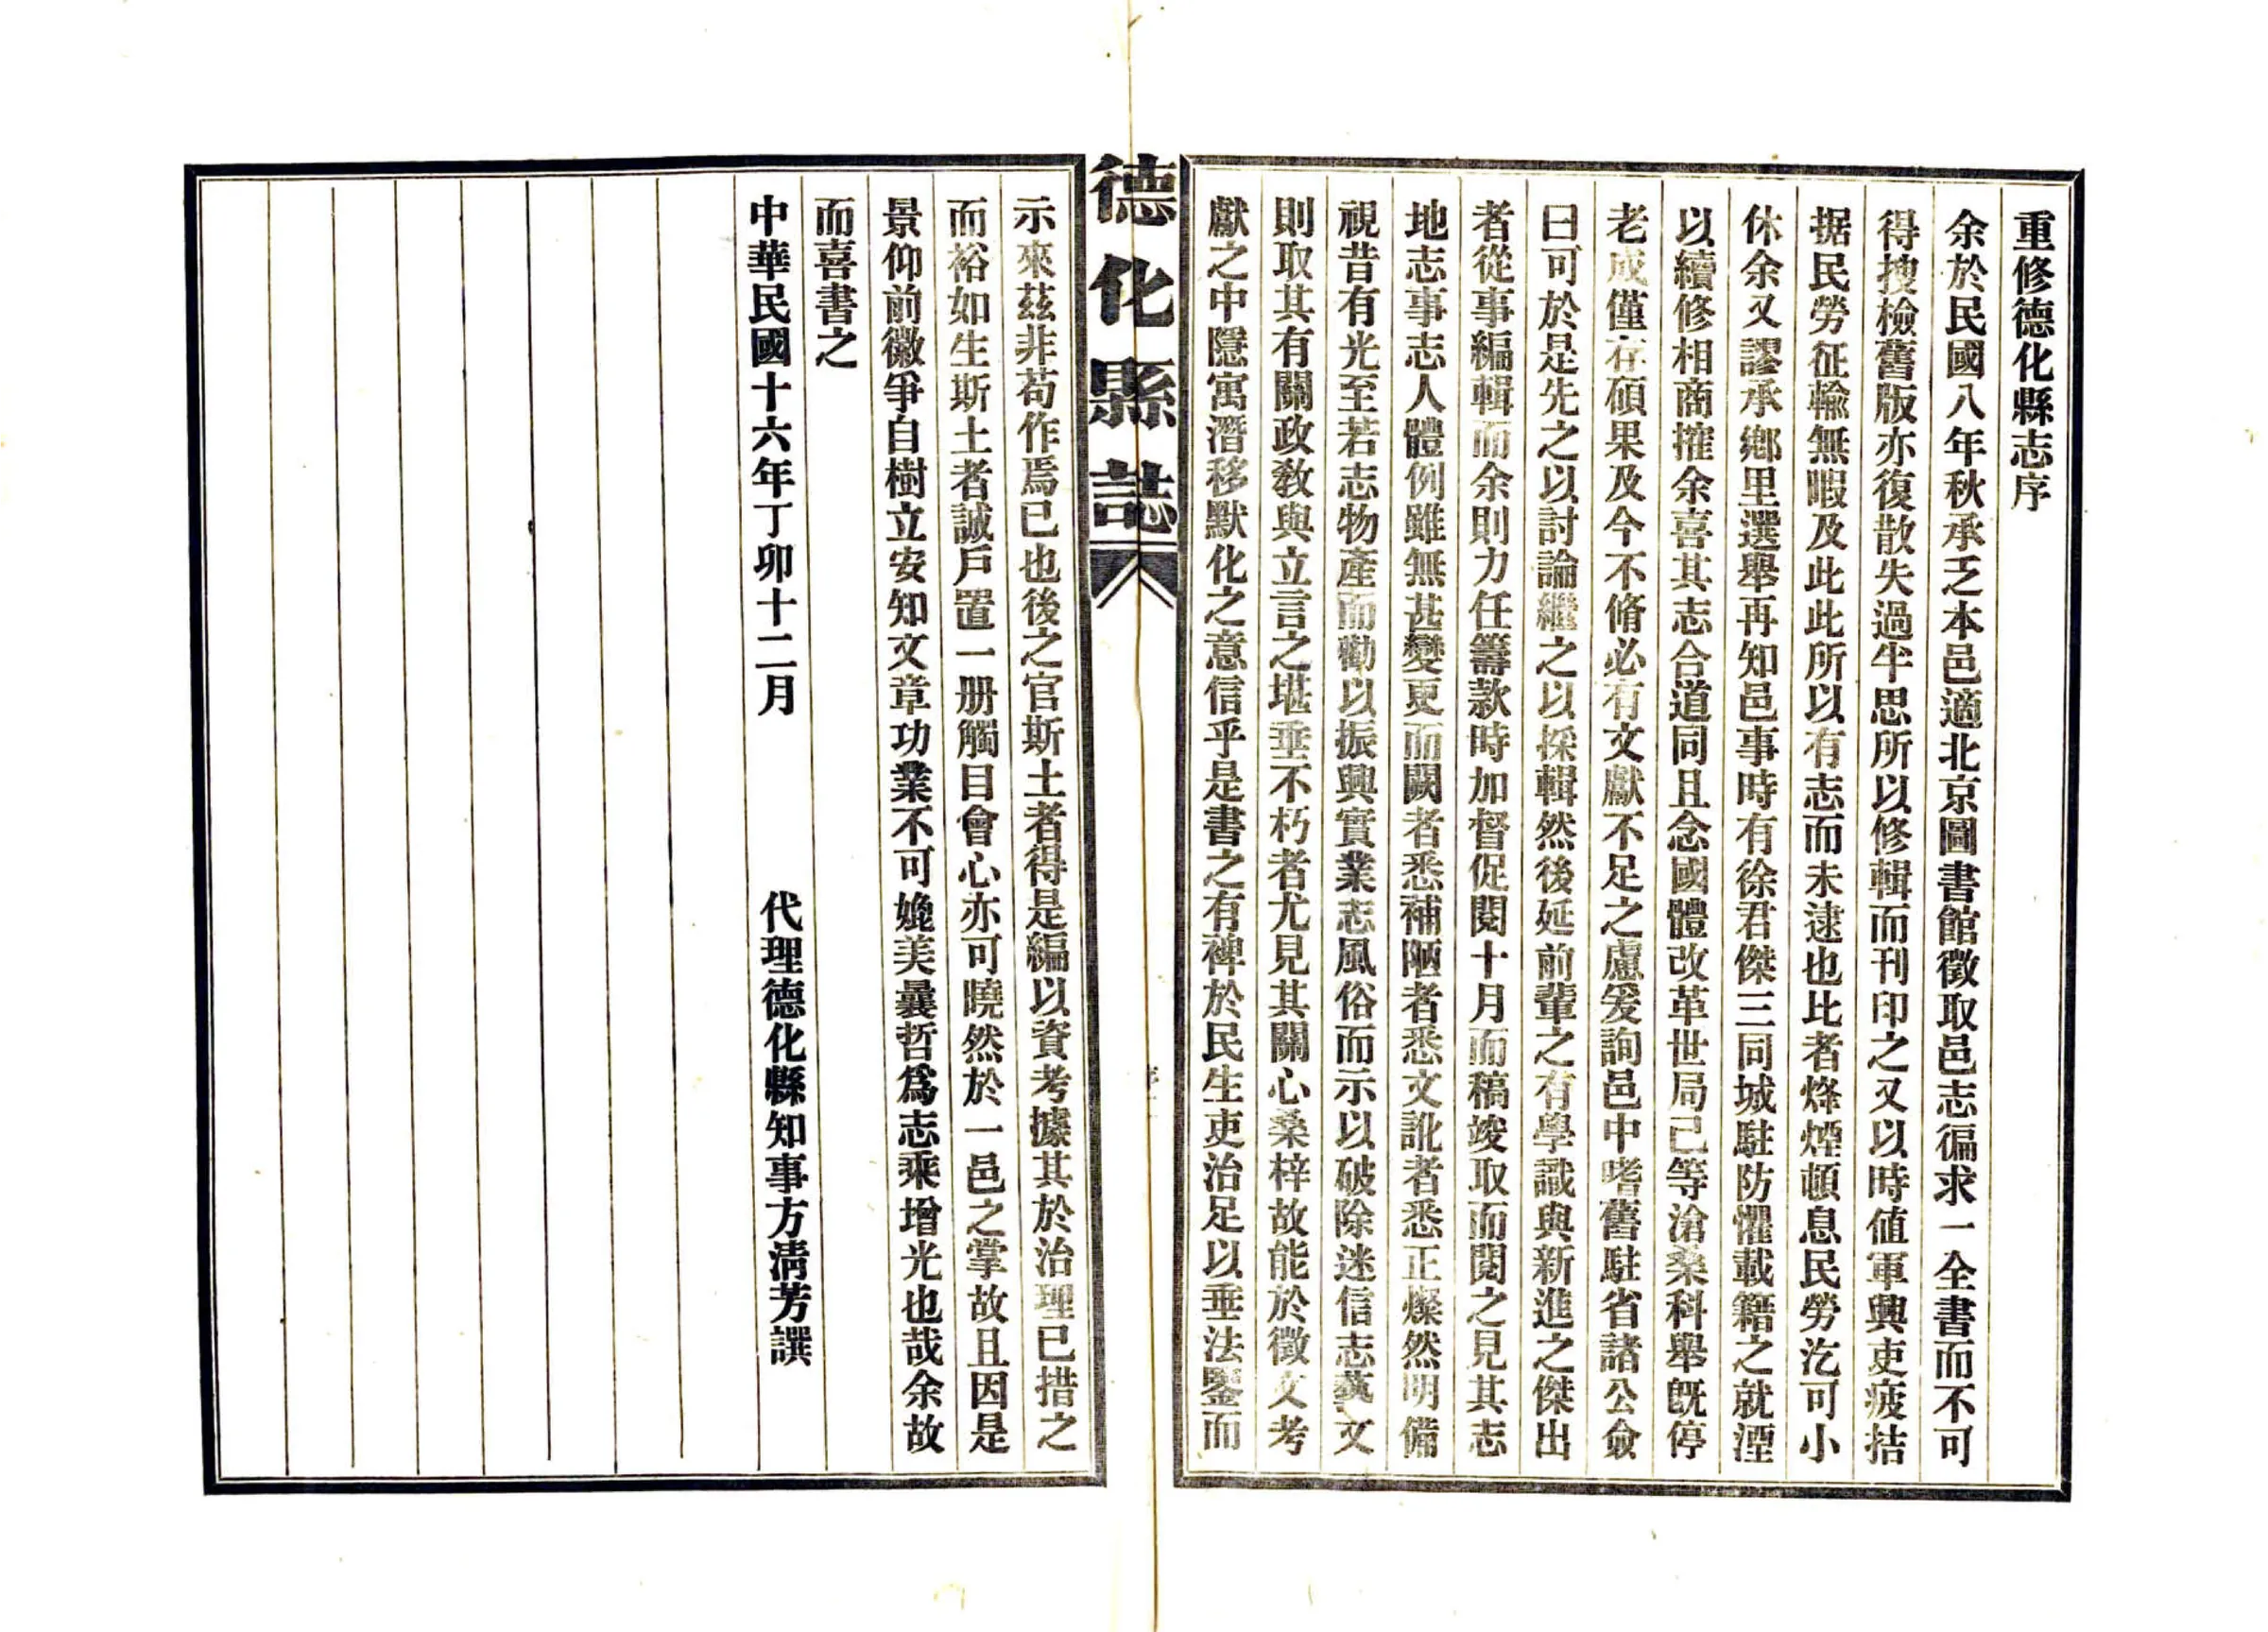 重修德化縣志序
余於民國八年秋承乏本邑適北京圖書館徵取邑志徧求一全書而不可
得搜檢舊版亦復散失過半思所以修輯而刊印之又以時值軍興吏疲拮
据民勞征輸無暇及此此所以有志而未逮也比者烽煙頓息民勞汔可小
休余又謬承鄉里選舉再知邑事時有徐君傑三同城駐防懼載籍之就湮
以續修相商搉余喜其志合道同且念國體改革世局已等滄桑科舉旣停
老成僅存碩果及今不脩必有文獻不足之慮爰詢邑中耆舊駐省諸公僉
曰可於是先之以討論繼之以採輯然後延前輩之有學識與新進之傑出
者從事編輯而余則力任籌款時加督促閱十月而稿竣取而閱之見其志
地志事志人體例雖無甚變更而闕者悉補陋者悉文訛者悉正燦然明備
視昔有光至若志物產而勸以振興實業志風俗而示以破除迷信志藝文
則取其有關政敎與立言之堪垂不朽者尤見其關心桑梓故能於徵文考
獻之中隱寓潛移默化之意信乎是書之有裨於民生吏治足以垂法鑒而
德化縣誌
示來茲非苟作焉已也後之官斯土者得是編以資考據其於治理已措之
而裕如生斯土者誠戶置一册觸目會心亦可曉然於一邑之掌故且因是
景仰前徽爭自樹立安知文章功業不可媲美曩哲爲志乘增光也哉余故
而喜書之
中華民國十六年丁卯十二月　代理德化縣知事方淸芳譔